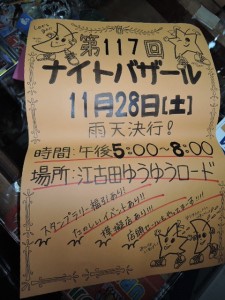 第117回
ナイトバザール
11月28日[土]
雨天決行!
時間:午後5:00~8:00
場所:江古田ゆうゆうロード
スタンプラリー福引あり!
たのしいイベントあり!!
模擬店あり!!!
店頭セールもやってまーす!!!!